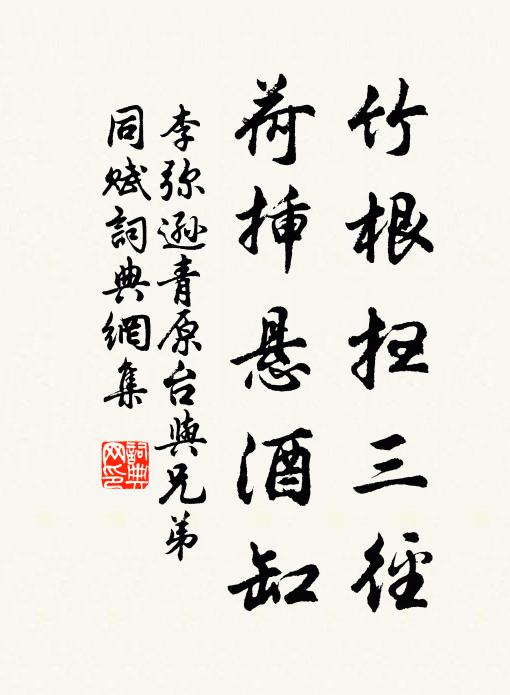 竹根扫三径
荷挿悬酒缸
李弥逊青原台與兄弟
同赋詞典網集
詞典
网印